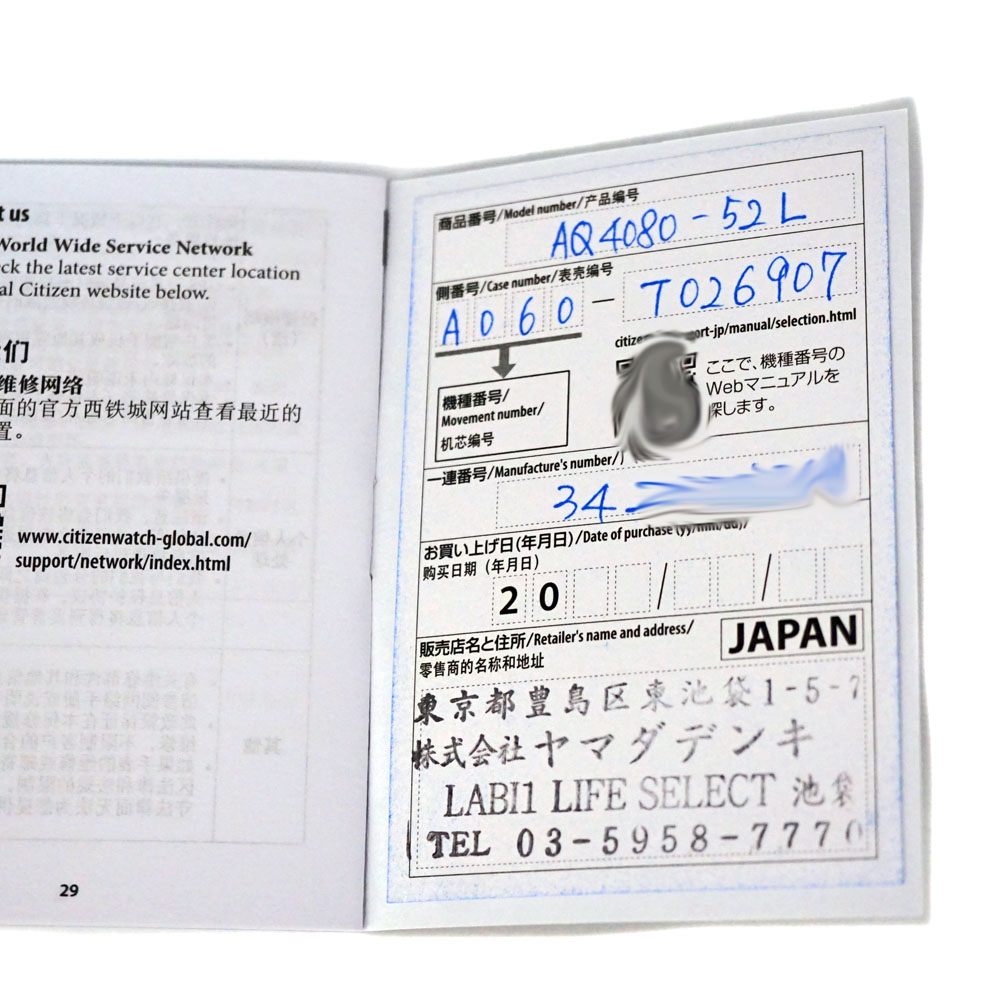 t us
World Wide Service Network
ck the latest service center location
al Citizen website below.
们
维修网络
面的官方西铁城网站查看最近的
置。
www.citizenwatch-global.com/
support/network/index.html
29
商品番号/Model number/产品编号
AQ4080-52L
側番号/Case number/表壳编号
A060-T026907
port-jp/manual/selection.html
ここで、機種番号の
Webマニュアルを
探します。
機種番号/
Movement number/
机芯编号
一連番号/Manufacture's number/
34
お買い上げ日(年月日)/Date of purchase (yy/mm/dd)/
购买日期（年月日）
20 / /
販売店名と住所/Retailer's name and address/
零售商的名称和地址
JAPAN
東京都豊島区東池袋1-5-7
株式会社ヤマダデンキ
LABI1 LIFE SELECT 池袋
TEL 03-5958-7770